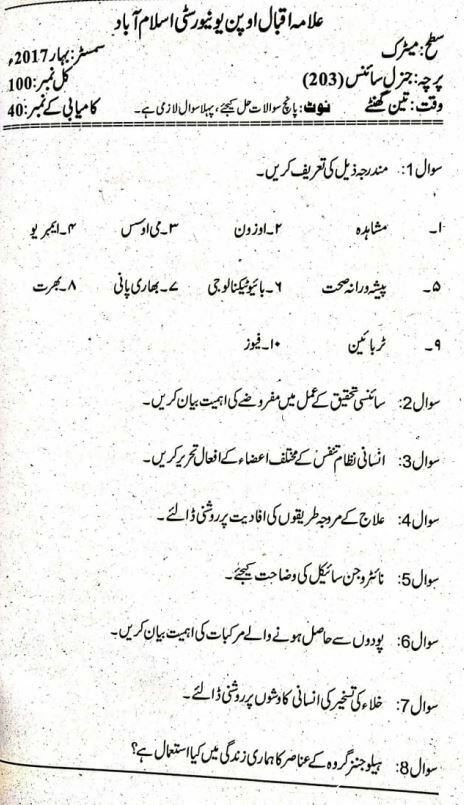 علامہ اقبال اوپن یونیورسٹی اسلام آباد
سطح: میٹرک سمسٹر: بہار 2017ء
پرچہ: جنرل سائنس (203) کل نمبر: 100
وقت: تین گھنٹے نوٹ: پانچ سوالات حل کیجئے، پہلا سوال لازمی ہے۔ کامیابی کے نمبر: 40
سوال 1: مندرجہ ذیل کی تعریف کریں۔
۱۔ مشاہدہ ۲۔ اوزون ۳۔ می اوسس ۴۔ ایمبریو
۵۔ پیشہ ورانہ صحت ۶۔ بائیوٹیکنالوجی ۷۔ بھاری پانی ۸۔ بھرت
۹۔ ٹربائین ۱۰۔ فیوز
سوال 2: سائنسی تحقیق کے عمل میں مفروضے کی اہمیت بیان کریں۔
سوال 3: انسانی نظام تنفس کے مختلف اعضاء کے افعال تحریر کریں۔
سوال 4: علاج کے مروجہ طریقوں کی افادیت پر روشنی ڈالئے۔
سوال 5: نائٹروجن سائیکل کی وضاحت کیجئے۔
سوال 6: پودوں سے حاصل ہونے والے مرکبات کی اہمیت بیان کریں۔
سوال 7: خلاء کی تسخیر کی انسانی کاوشوں پر روشنی ڈالئے۔
سوال 8: ہیلوجنز گروہ کے عناصر کا ہماری زندگی میں کیا استعمال ہے؟